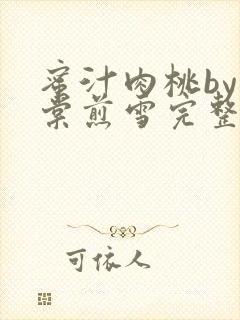 蜜汁肉桃by
棠煎雪完整
可依人